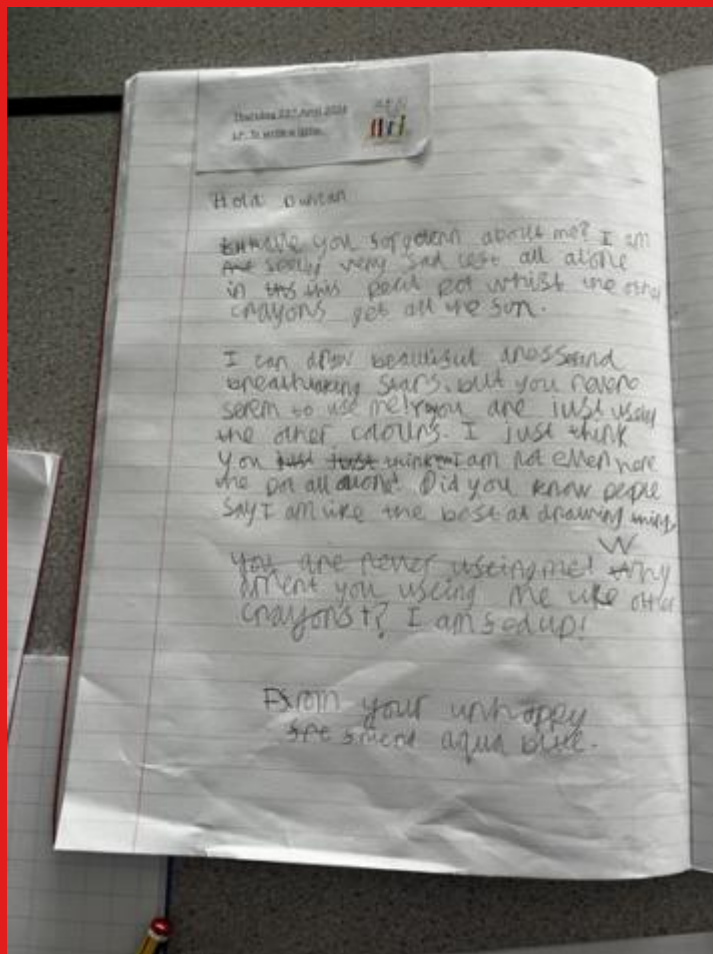 Thursday 25th April 2024
LP: To write a letter.
Hola Duncan
Have you forgotenn about me? I am
feeling very sad left all alone
in this pencil pot whilst the other
crayons get all the sun.
I can draw beautiful
breathtaking stars, but you never
seem to use me! you are just
the other colours. I just think
you just just think I am not even here
the pot all alone! Did you know people
say I am like the best at drawing things
W
you are never useing me! Why
arrent you useing me like other
crayons? I am fed up!
From your unhappy
aqua blue.